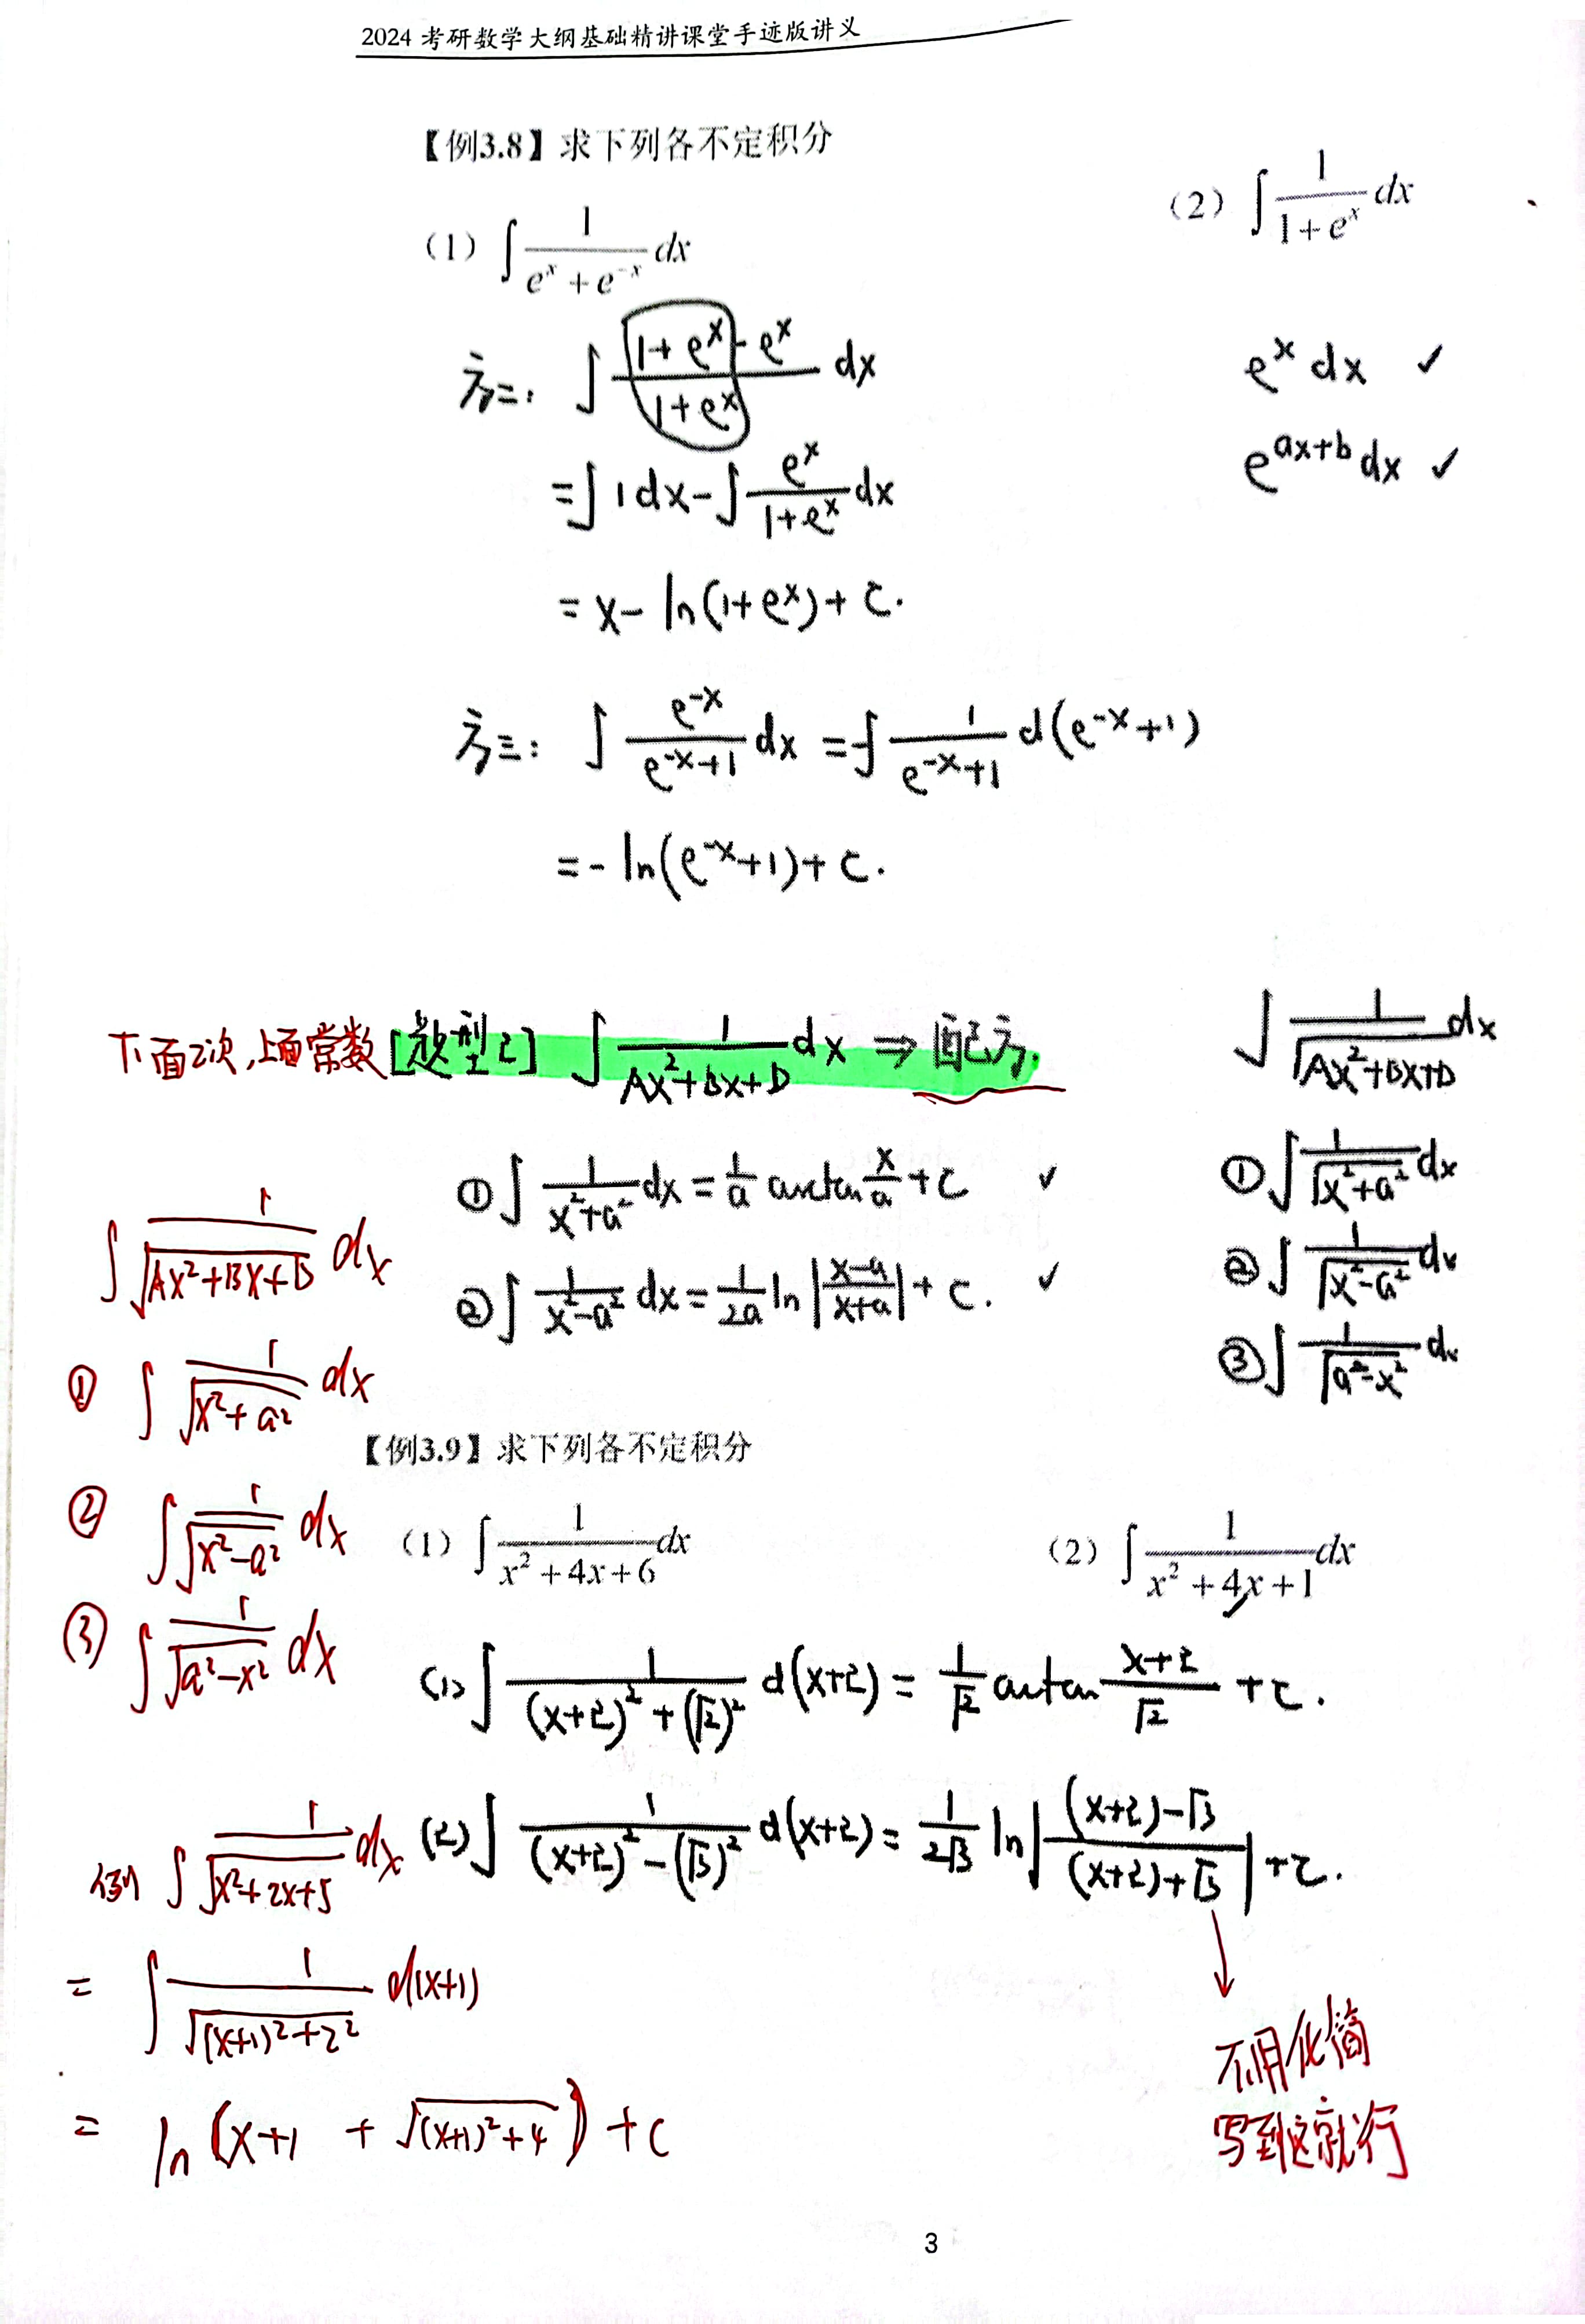 2024 考研数学大纲基础精讲课堂手迹版讲义
【例3.8】求下列各不定积分
(1) ∫ 1/(e^x + e^{-x}) dx
(2) ∫ 1/(1 + e^x) dx
方二: ∫ (1+e^x - e^x)/(1+e^x) dx
e^x dx ✓
= ∫ 1 dx - ∫ e^x/(1+e^x) dx
e^{ax+b} dx ✓
= x - ln(1+e^x) + C.
方三: ∫ e^{-x}/(e^{-x}+1) dx = -∫ 1/(e^{-x}+1) d(e^{-x}+1)
= - ln(e^{-x}+1) + C.
下面2次,上面常数 [题型2] ∫ 1/(Ax²+Bx+D) dx ⇒ 配方.
∫ 1/√(Ax²+Bx+D) dx
① ∫ 1/(x²+a²) dx = 1/a arctan x/a + C ✓
② ∫ 1/(x²-a²) dx = 1/(2a) ln|(x-a)/(x+a)| + C. ✓
① ∫ 1/√(x²+a²) dx
② ∫ 1/√(x²-a²) dx
③ ∫ 1/√(a²-x²) dx
∫ 1/√(Ax²+Bx+D) dx
① ∫ 1/√(x²+a²) dx
② ∫ 1/√(x²-a²) dx
③ ∫ 1/√(a²-x²) dx
【例3.9】求下列各不定积分
(1) ∫ 1/(x² + 4x + 6) dx
(2) ∫ 1/(x² + 4x + 1) dx
(1) ∫ 1/((x+2)² + (√2)²) d(x+2) = 1/√2 arctan (x+2)/√2 + C.
(2) ∫ 1/((x+2)² - (√3)²) d(x+2) = 1/(2√3) ln|((x+2)-√3)/((x+2)+√3)| + C.
不用化简
写到这就行
例 ∫ 1/√(x²+2x+5) dx
= ∫ 1/√((x+1)²+2²) d(x+1)
= ln (x+1 + √((x+1)²+4)) + C
3